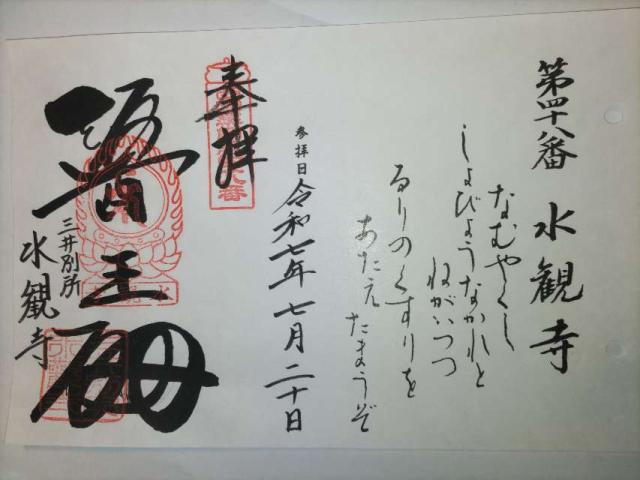 第四十八番 水観寺
なむやくし
しょびょうなかれと
ねがいつつ
るりのくすりを
あたえたまうぞ
参拝日 令和七年七月二十日
奉拝
医王殿
三井別所
水観寺